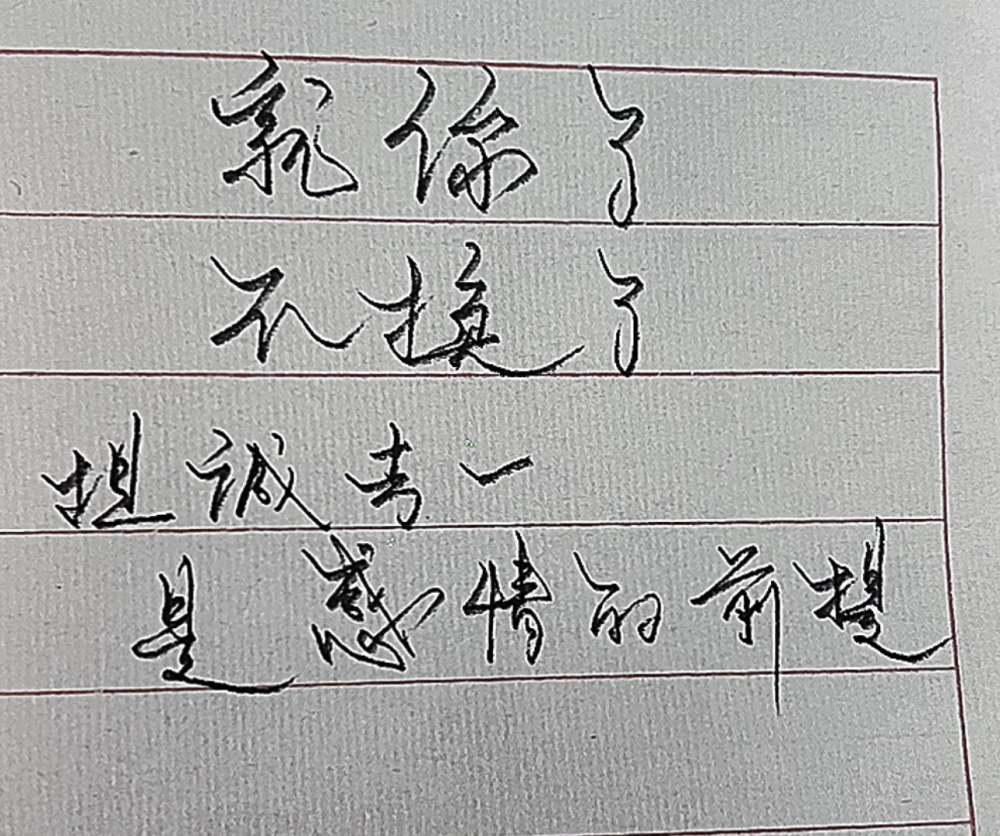 就你了
不换了
坦诚专一
是感情的前提